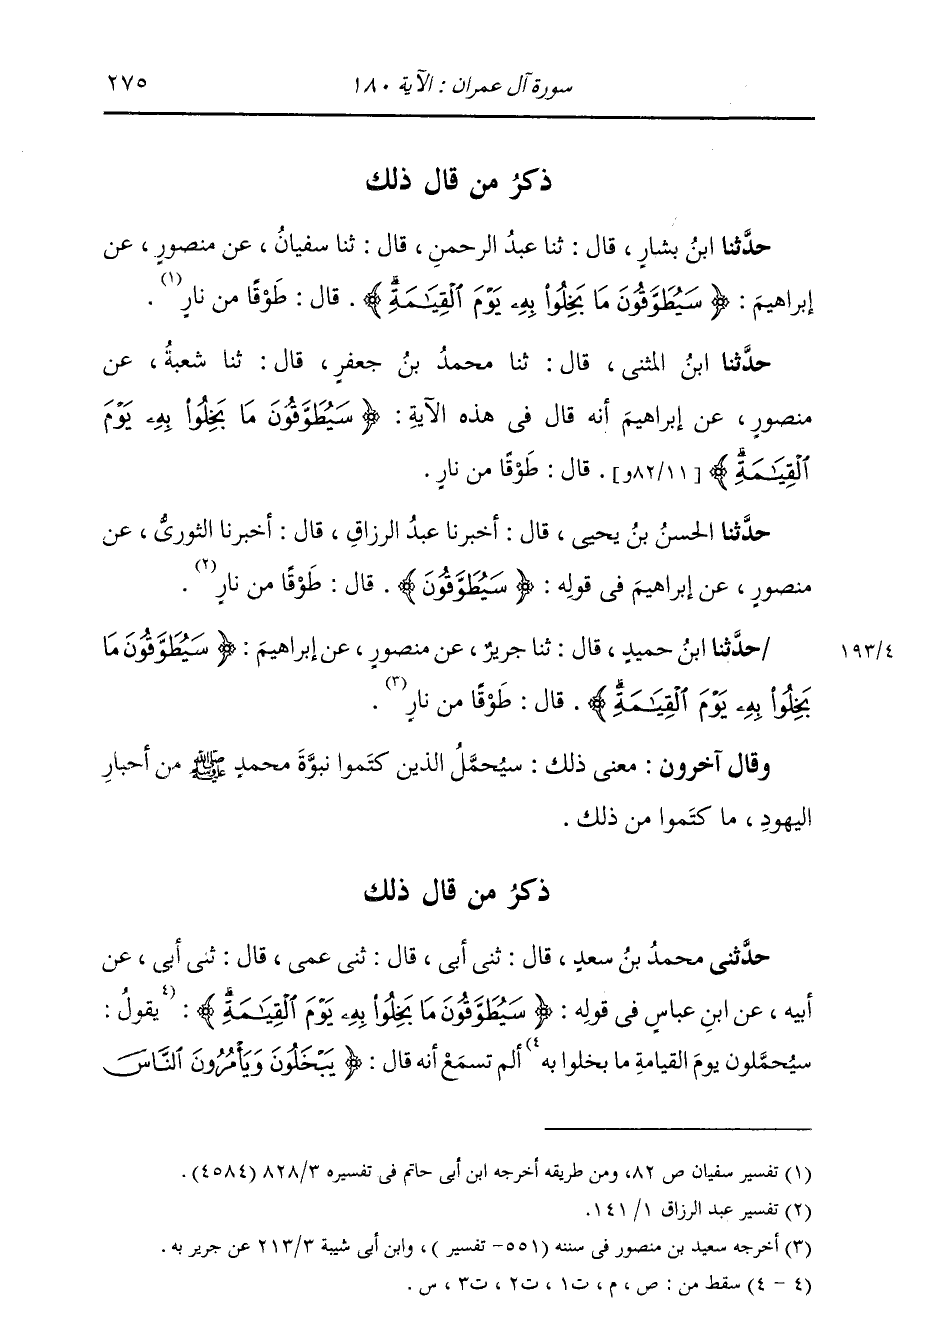 سورة آل عمران : الآية ١٨٠ ٢٧٥
ذكرُ من قال ذلك
حدَّثنا ابنُ بشارٍ ، قال : ثنا عبدُ الرحمنِ ، قال : ثنا سفيانُ ، عن منصورٍ ، عن
إبراهيمَ : ﴿ سَيُطَوَّقُونَ مَا بَخِلُوا۟ بِهِۦ يَوْمَ ٱلْقِيَـٰمَةِۗ ﴾ . قال : طَوْقًا من نارٍ(١) .
حدَّثنا ابنُ المثنى ، قال : ثنا محمدُ بنُ جعفرٍ ، قال : ثنا شعبةُ ، عن
منصورٍ ، عن إبراهيمَ أنه قال فى هذه الآيةِ : ﴿ سَيُطَوَّقُونَ مَا بَخِلُوا۟ بِهِۦ يَوْمَ
ٱلْقِيَـٰمَةِۗ ﴾ [٨٢/١١و] . قال : طَوْقًا من نارٍ .
حدَّثنا الحسنُ بنُ يحيى ، قال : أخبرنا عبدُ الرزاقِ ، قال : أخبرنا الثورىُّ ، عن
منصورٍ ، عن إبراهيمَ فى قولِه : ﴿ سَيُطَوَّقُونَ ﴾ . قال : طَوْقًا من نارٍ(٢) .
١٩٣/٤ /حدَّثنا ابنُ حميدٍ ، قال : ثنا جريرٌ ، عن منصورٍ ، عن إبراهيمَ : ﴿ سَيُطَوَّقُونَ مَا
بَخِلُوا۟ بِهِۦ يَوْمَ ٱلْقِيَـٰمَةِۗ ﴾ . قال : طَوْقًا من نارٍ(٣) .
وقال آخرون : معنى ذلك : سيُحمَّلُ الذين كتَموا نبوَّةَ محمدٍ ﷺ من أحبارِ
اليهودِ ، ما كتَموا من ذلك .
ذكرُ من قال ذلك
حدَّثنى محمدُ بنُ سعدٍ ، قال : ثنى أبى ، قال : ثنى عمى ، قال : ثنى أبى ، عن
أبيه ، عن ابنِ عباسٍ فى قولِه : ﴿ سَيُطَوَّقُونَ مَا بَخِلُوا۟ بِهِۦ يَوْمَ ٱلْقِيَـٰمَةِۗ ﴾ : (٤يقولُ :
سيُحمَّلون يومَ القيامةِ ما بخلوا به٤) ألم تسمَعْ أنه قال : ﴿ يَبْخَلُونَ وَيَأْمُرُونَ ٱلنَّاسَ
(١) تفسير سفيان ص ٨٢، ومن طريقه أخرجه ابن أبى حاتم فى تفسيره ٨٢٨/٣ (٤٥٨٤) .
(٢) تفسير عبد الرزاق ١/ ١٤١.
(٣) أخرجه سعيد بن منصور فى سننه (٥٥١- تفسير ) ، وابن أبى شيبة ٢١٣/٣ عن جرير به .
(٤ - ٤) سقط من : ص ، م ، ت١ ، ت٢ ، ت٣ ، س .